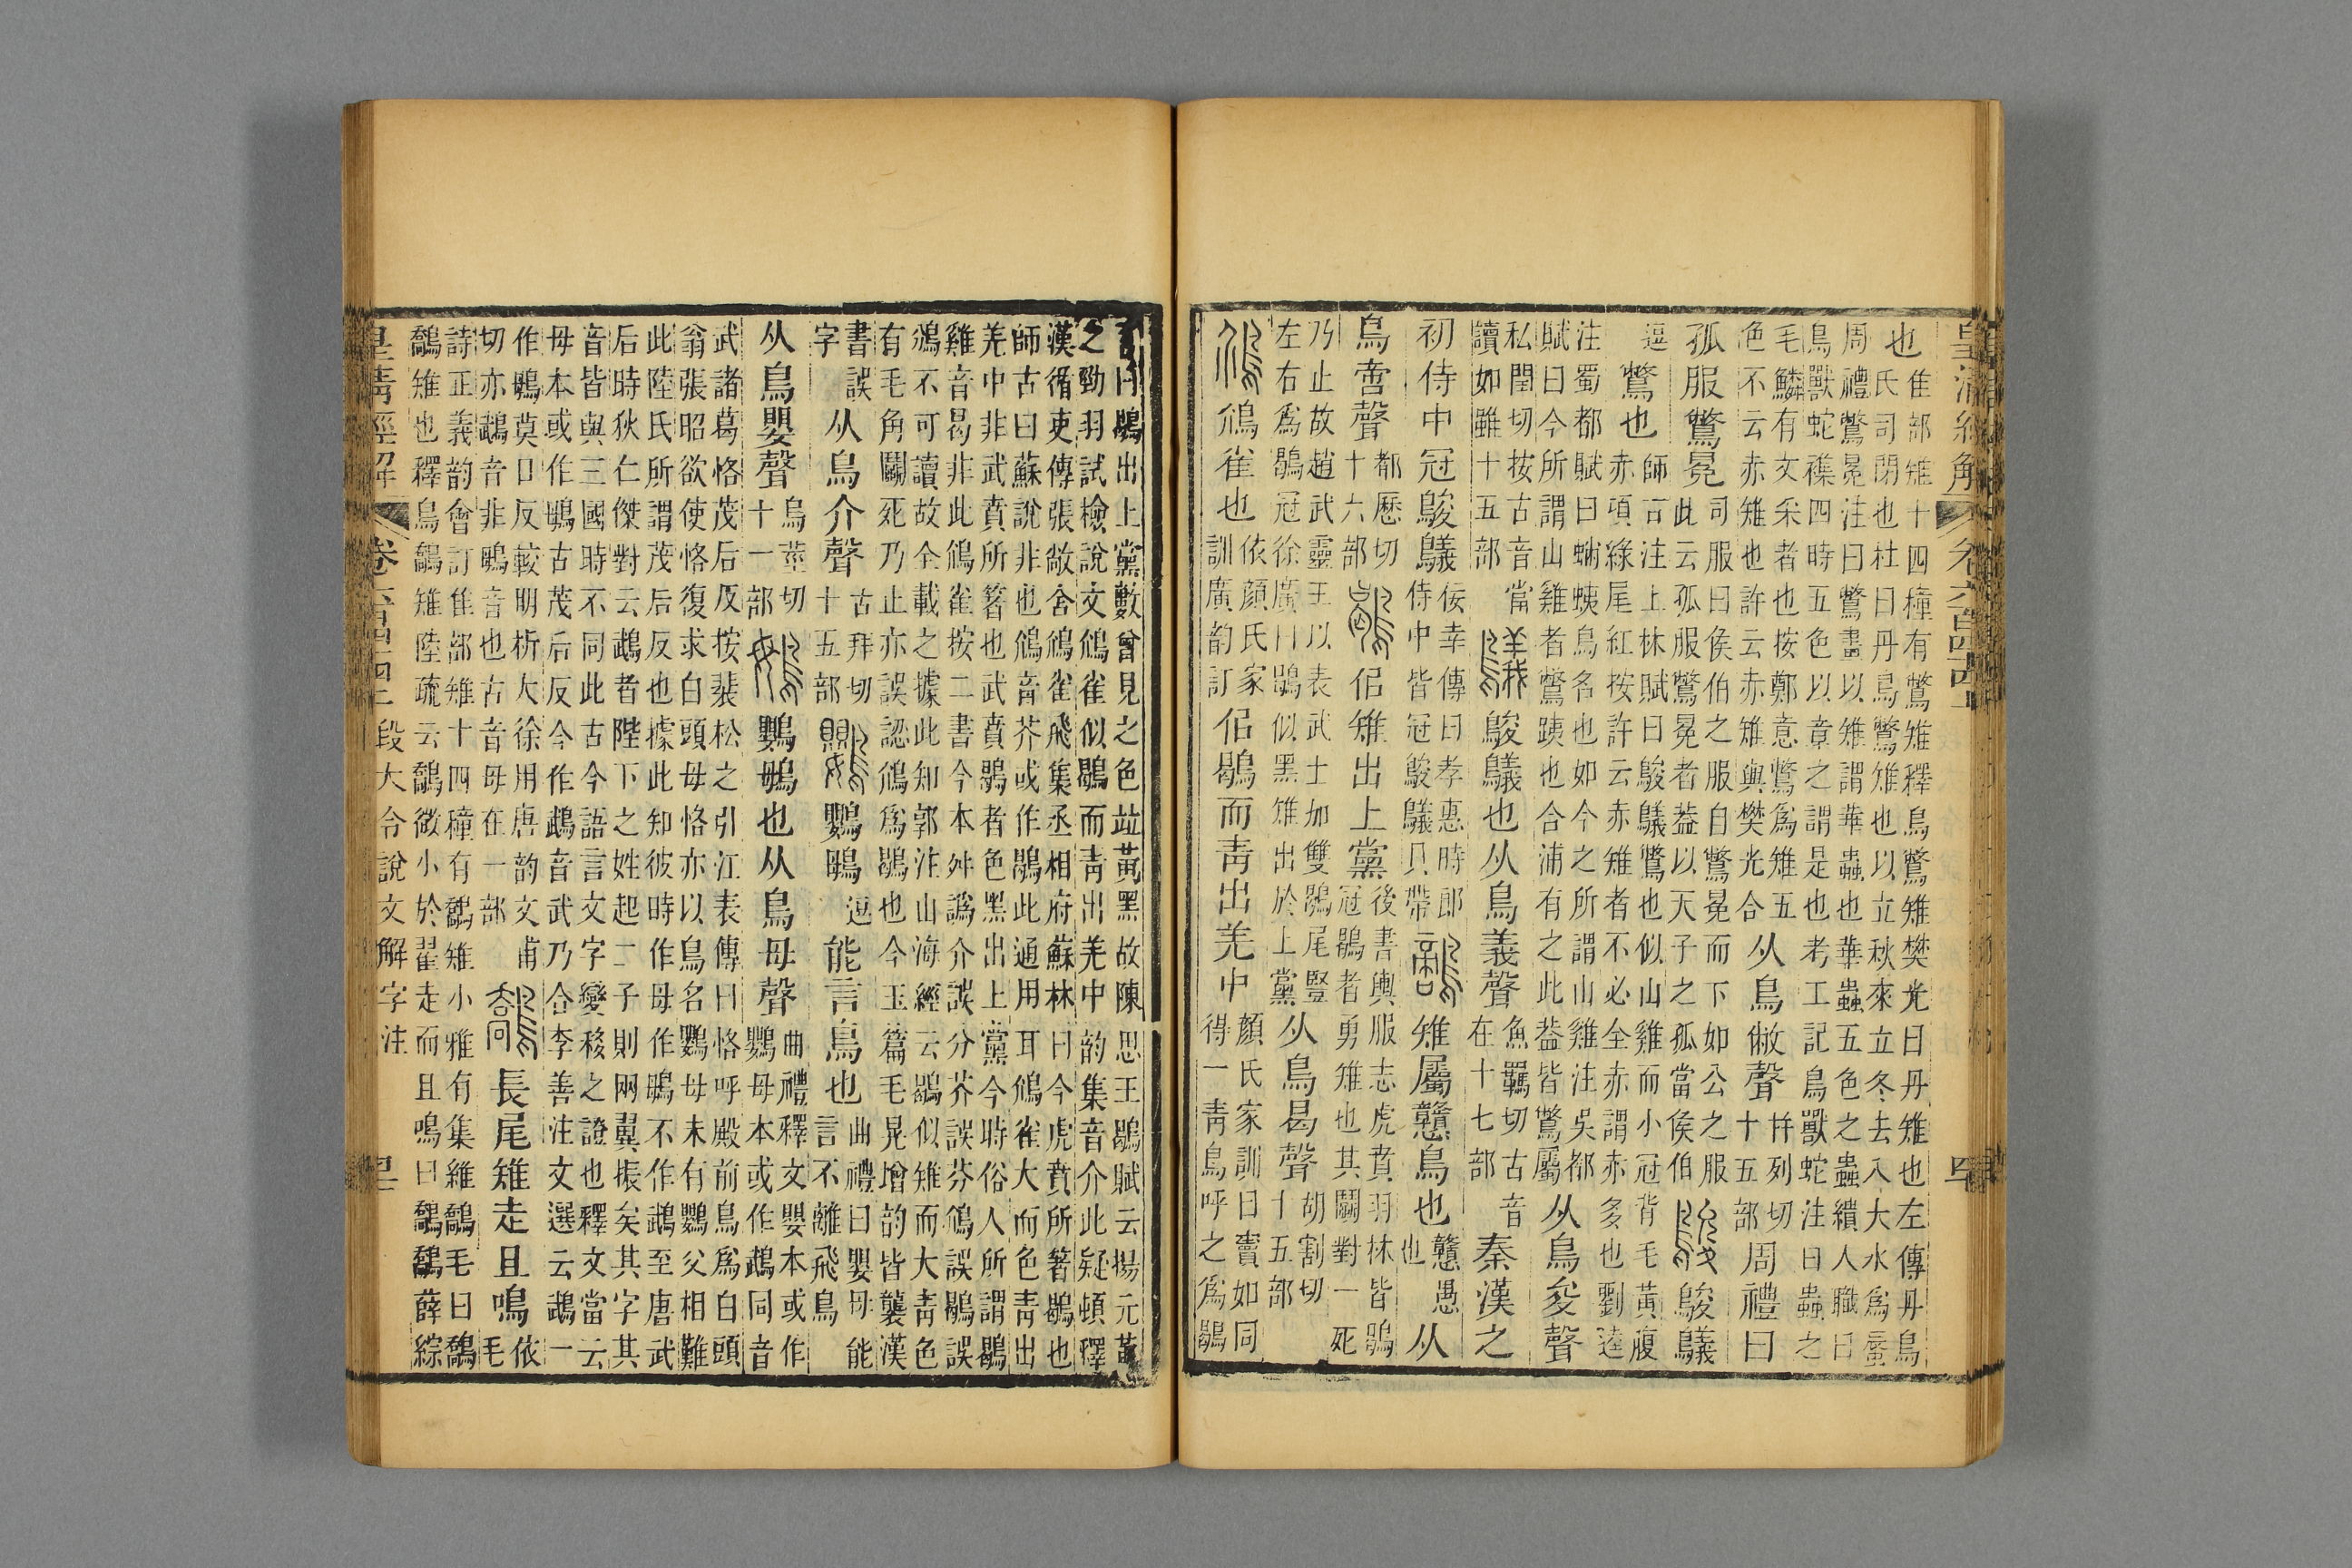 皇清經解 卷六百四十四上 四十
也隹部雉十四種有鷩雉釋鳥鷩雉樊光曰丹雉也左傳丹鳥
氏司閉也杜曰丹鳥鷩雉也以立秋來立冬去入大水爲蜃
周禮鷩冕注曰鷩畫以雉謂華蟲也華蟲五色之蟲繢人職曰
鳥獸蛇襍四時五色以章之謂是也考工記鳥獸蛇注曰蟲之
毛鱗有文采者也按鄭意鷩爲雉五
色不云赤雉也許云赤雉與樊光合
从鳥敝聲幷列切十五部周禮曰
孤服鷩冕司服曰侯伯之服自鷩冕而下如公之服
此云孤服鷩冕者葢以天子之孤當侯伯
鵔鵔鸃
逗鷩也師古注上林賦曰鵔鸃鷩也似山雞而小冠背毛黃腹
赤項綠尾紅按許云赤雉者不必全赤謂赤多也劉逵
注蜀都賦曰蜅蛦鳥名也如今之所謂山雞注吳都
賦曰今所謂山雞者鷩跠也合浦有之此葢皆鷩屬
从鳥夋聲
私閏切按古音當
讀如雖十五部
鸃鵔鸃也从鳥義聲魚羈切古音
在十七部
秦漢之
初侍中冠鵔鸃佞幸傳曰孝惠時郎
侍中皆冠鵔鸃貝帶
雉屬戇鳥也戇愚也从
鳥啻聲都歷切十六部
鶡佀雉出上黨後書輿服志虎賁羽林皆鶡
冠鶡者勇雉也其鬭對一死
乃止故趙武靈王以表武士加雙鶡尾豎
左右爲鶡冠徐廣曰鶡似黑雉出於上黨
从鳥曷聲胡割切十五部
䲸䲸雀也依顏氏家
訓廣韵訂
佀鶡而靑出羌中顏氏家訓曰竇如同
得一靑鳥呼之爲鶡
吾曰鶡出上黨數曾見之色竝黃黑故陳思王鶡賦云揚元黃
之勁羽試檢說文䲸雀似鶡而靑出羌中韵集音介此疑頓釋
漢循吏傳張敞舍䲸雀飛集丞相府蘇林曰今虎賁所箸鶡也
師古曰蘇說非也䲸音芥或作鶡此通用耳䲸雀大而色靑出
羌中非武賁所箸也武賁鶡者色黑出上黨今時俗人所謂鶡
雞音曷非此䲸雀按二書今本舛譌介誤分芥誤芬䲸誤鶡誤
鳻不可讀故全載之據此知郭注山海經云鶡似雉而大靑色
有毛角鬭死乃止亦誤認䲸爲鶡也今玉篇毛晃增韵皆襲漢
書誤
字
从鳥介聲古拜切十五部
鸚鸚鴞逗能言鳥也曲禮曰嬰母能
言不離飛鳥
从鳥嬰聲烏莖切十一部
䳇鸚䳇也从鳥母聲曲禮釋文嬰本或作
鸚母本或作鵡同音
武諸葛恪茂后反按裴松之引江表傳曰恪呼殿前鳥爲白頭
翁張昭欲使恪復求白頭母恪亦以鳥名鸚母未有鸚父相難
此陸氏所謂茂后反也據此知彼時作母作䳇不作鵡至唐武
后時狄仁傑對云鵡者陛下之姓起二子則兩翼振矣其字其
音皆與三國時不同此古今語言文字變移之證也釋文當云
母本或作䳇古茂后反今作鵡音武乃合李善注文選云鵡一
作䳇莫口反較明析大徐用唐韵文甫
切亦鵡音非䳇音也古音母在一部
鷮長尾雉走且鳴依毛
詩正義韵會訂隹部雉十四種有鷮雉小雅有集維鷮毛曰鷮
鷮雉也釋鳥鷮雉陸疏云鷮微小於翟走而且鳴曰鷮鷮薛綜
皇清經解 卷六百四十四上 段大令說文解字注 四十一